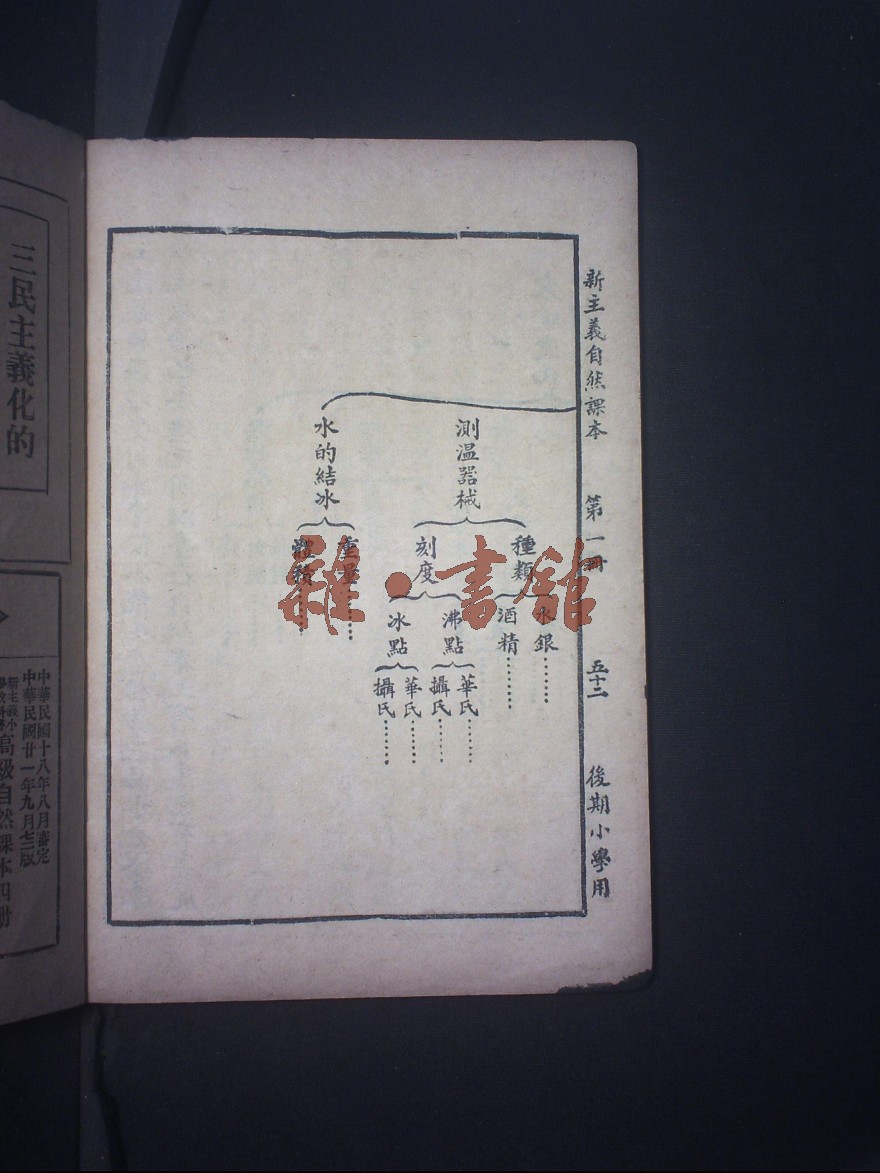 新主義自然課本 第一冊 五十二 後期小學用
測温器械
種類
水銀………
酒精………
刻度
沸點
華氏………
攝氏………
冰點
華氏………
攝氏………
水的結冰
重量………
體積………
雜·書館
三民主義化的
中華民國十八年八月審定
中華民國廿一年九月七三版
新主義小
高級自然課本四册